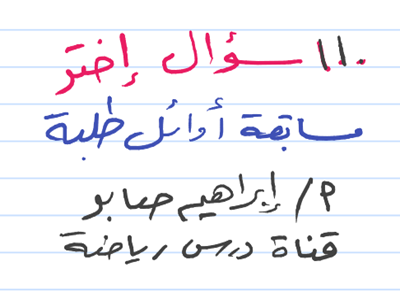 ١١٠ سؤال إختر
مسابقة أوائل طلبة
م/ إبراهيم صابو
قناة درس رياضة